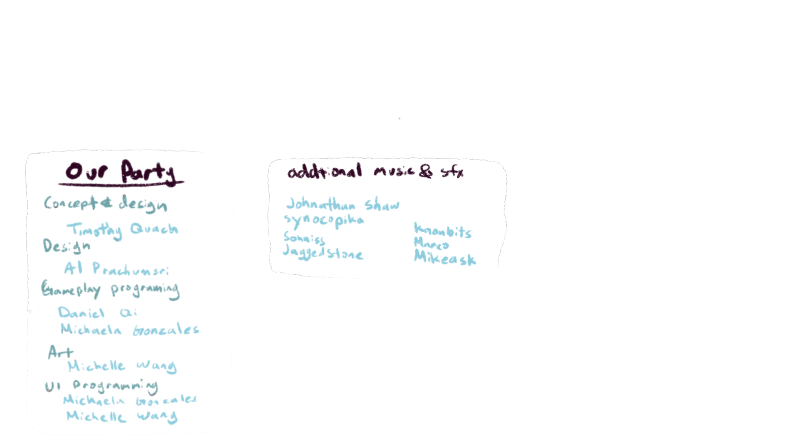 Our Party
Concept & design
Timothy Quach
Design
Al Prachumsri
Gameplay programing
Daniel Qi
Michaela Gonzales
Art
Michelle Wang
UI Programming
Michaela Gonzales
Michelle Wang
addtional music & sfx
Johnathan Shaw
synocopika
Sonniss
Jaggedstone
Marco
Mikeask